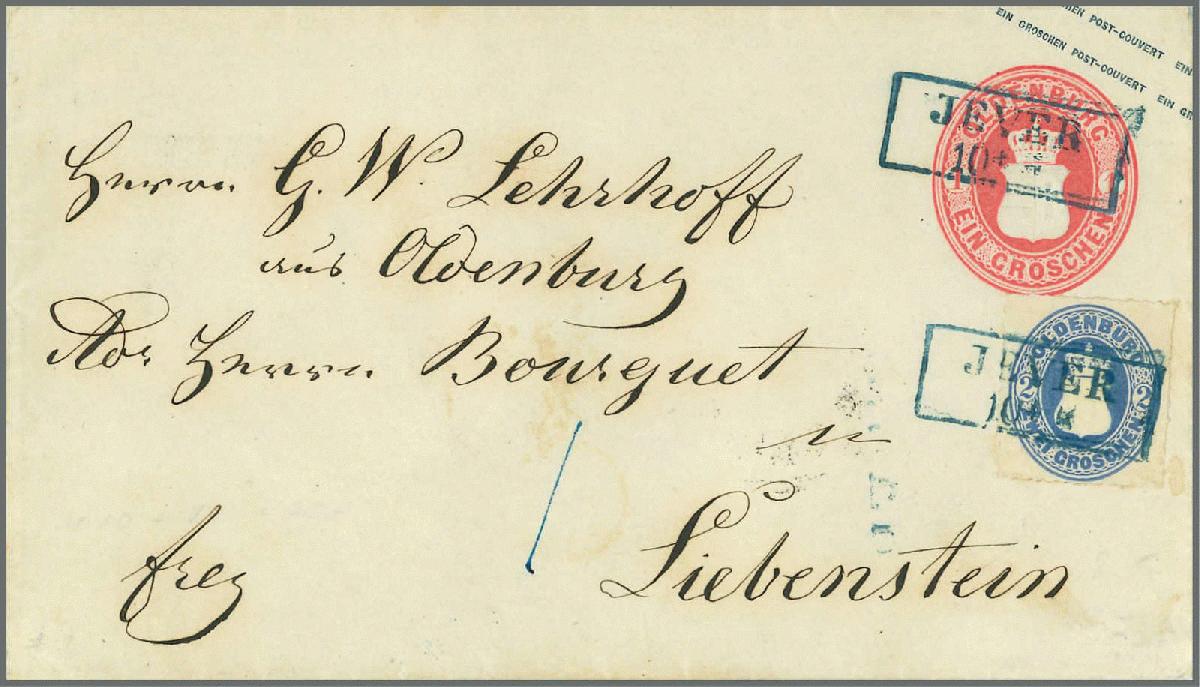 EIN GROSCHEN POST-COUVERT EIN
EIN GROSCHEN POST-COUVERT EIN GR
OLDENBURG
1
EIN GROSCHEN
JEVER
10
Herrn G. W. Lehrhoff
aus Oldenburg
Adr Herrn Bourguet
in
Liebenstein
frey
OLDENBURG
2 2
ZWEI GROSCHEN
JEVER
10